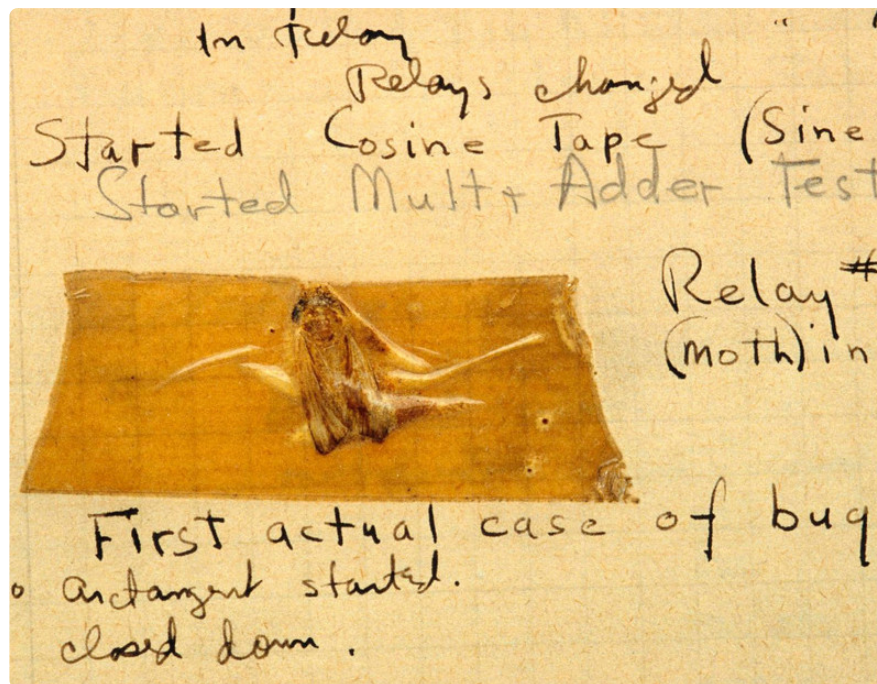 In Relay
Relays changed
Started Cosine Tape (Sine
Started Mult+ Adder Test
Relay #
(moth) in
First actual case of bug
arctangent started.
closed down.